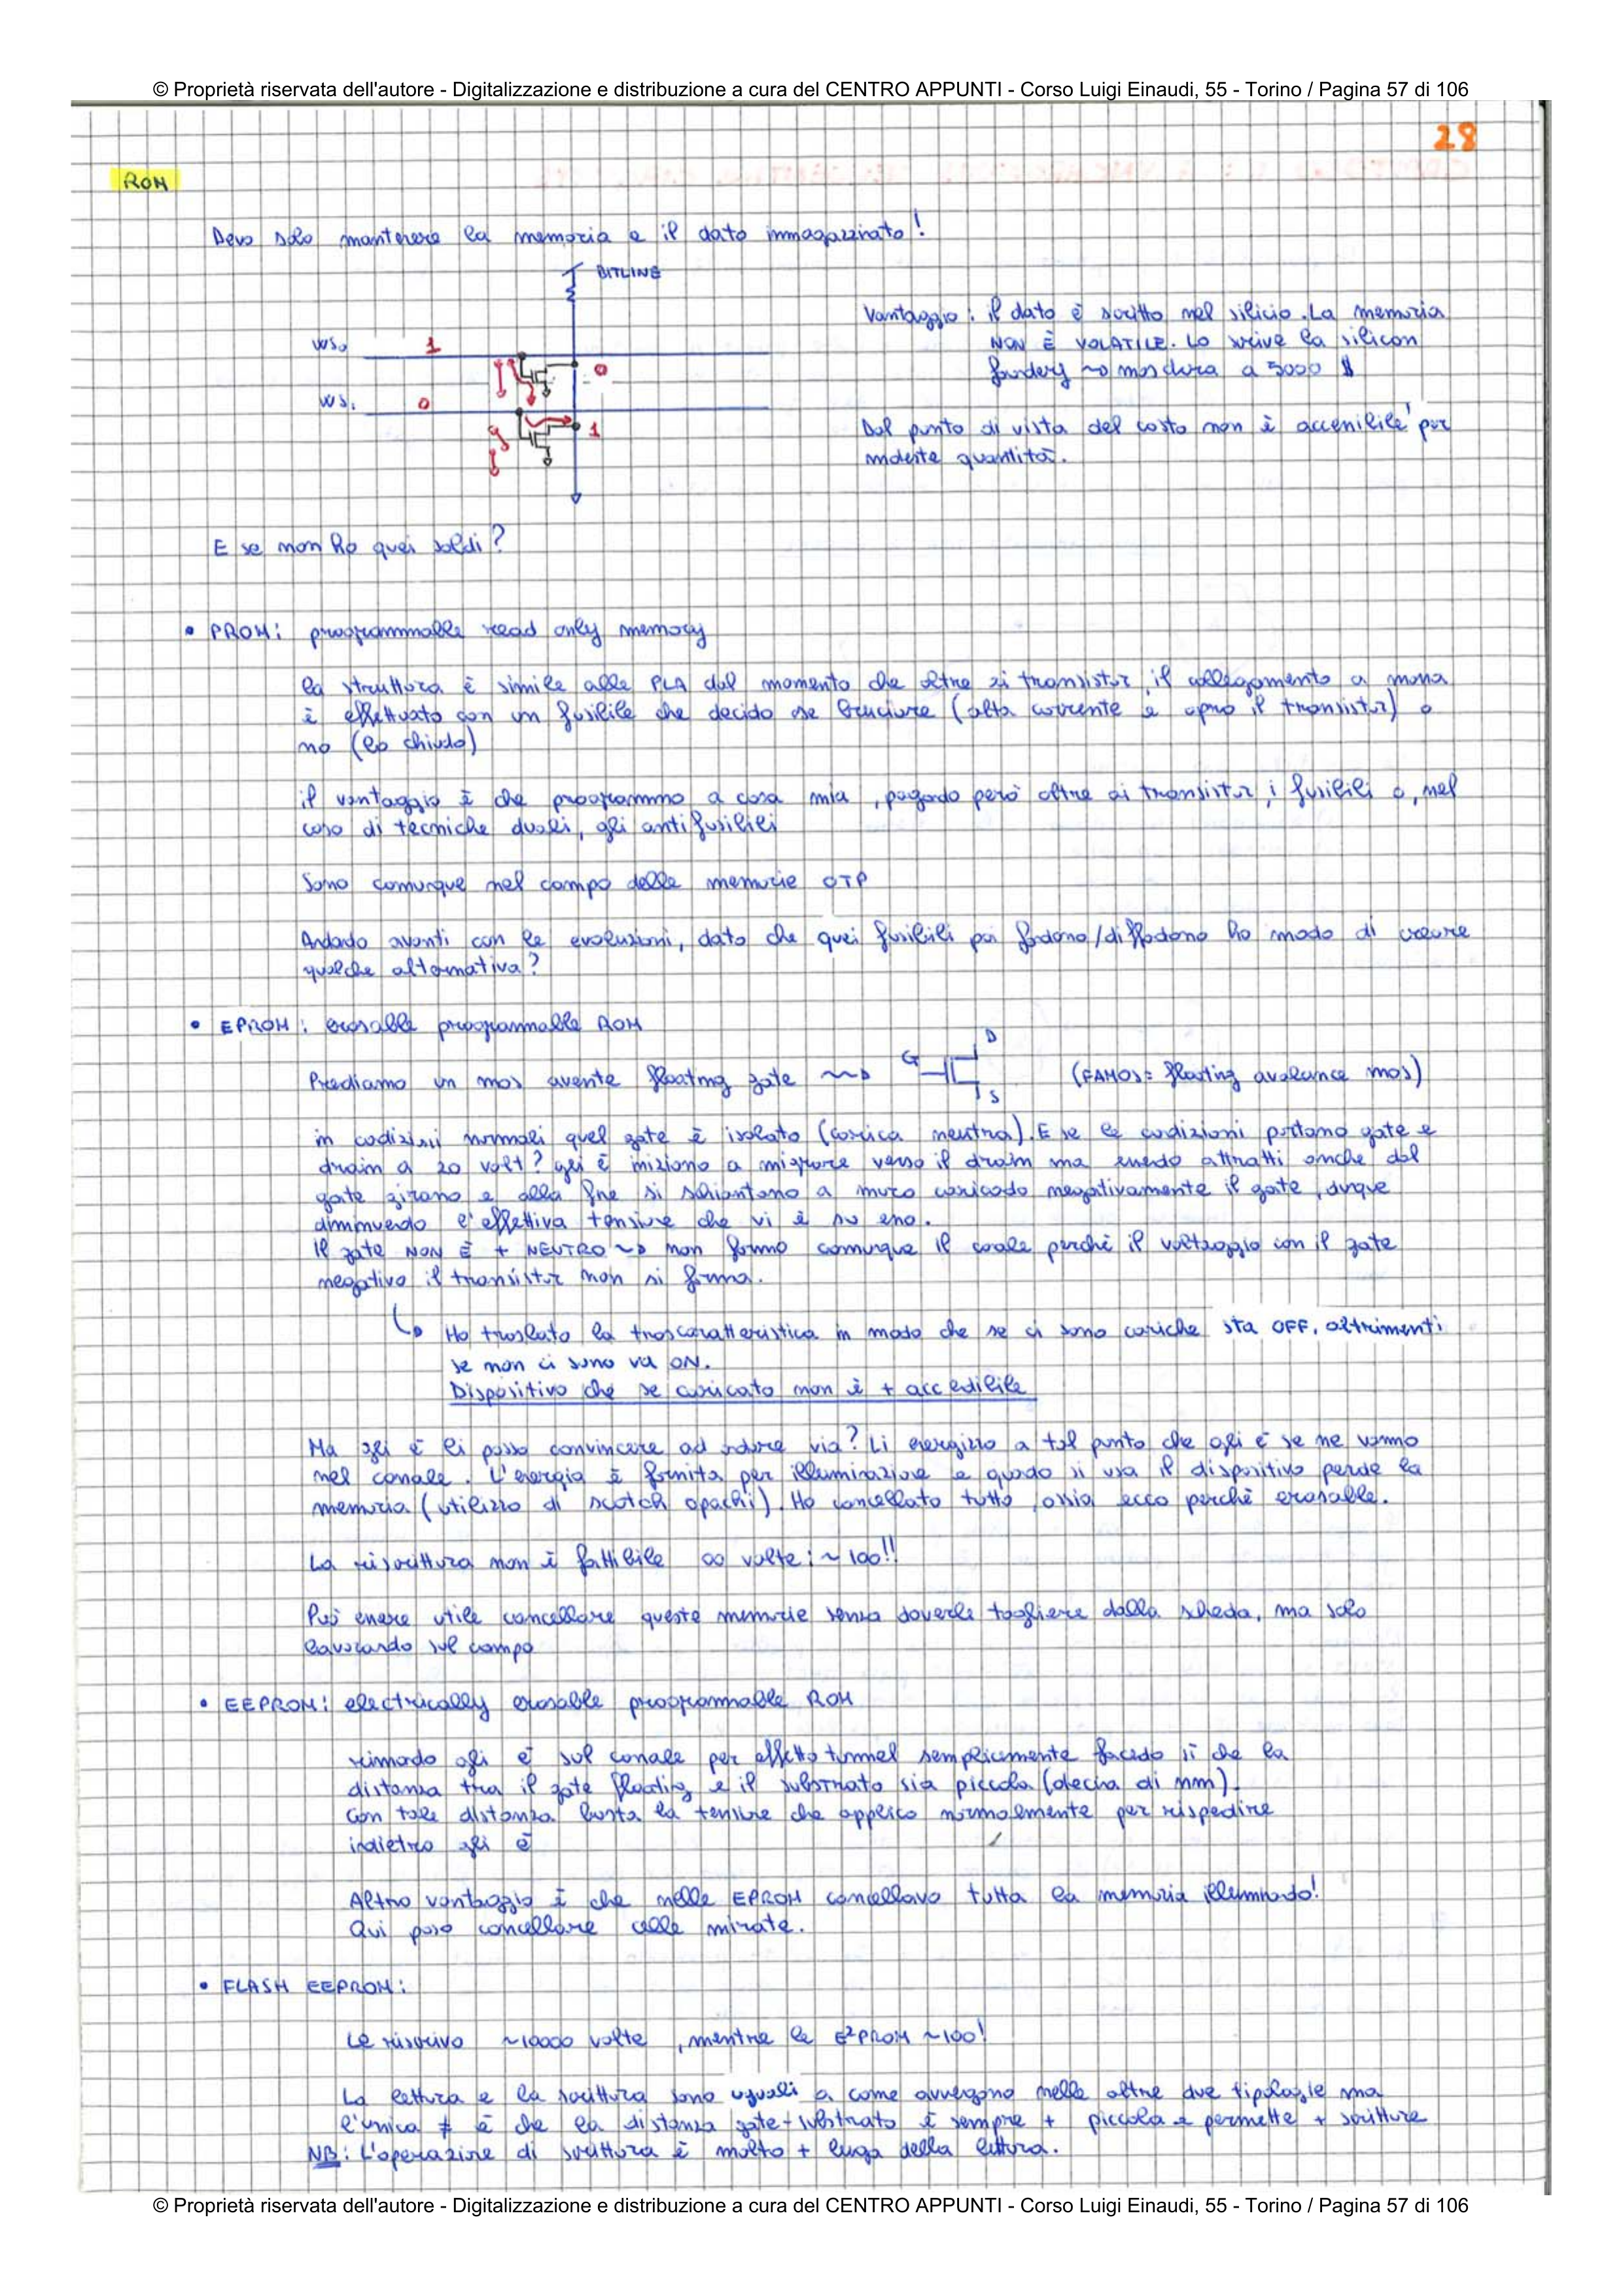 © Proprietà riservata dell'autore - Digitalizzazione e distribuzione a cura del CENTRO APPUNTI - Corso Luigi Einaudi, 55 - Torino / Pagina 57 di 106
28
ROM
Devo solo mantenere la memoria e il dato immagazzinato!
BITLINE
WS0 1
0
WS1 0
1
Vantaggio: il dato è scritto nel silicio. La memoria
NON È VOLATILE. Lo scrive la silicon
foundery ~> maschera a 5000 $
Dal punto di vista del costo non è accessibile per
modeste quantità.
E se non ho quei soldi?
• PROM: programmable read only memory
la struttura è simile alle PLA dal momento che oltre ai transistor, il collegamento a massa
è effettuato con un fusibile che decido se bruciare (alta corrente e apro il transistor) o
no (lo chiudo)
il vantaggio è che programmo a casa mia, pagando però oltre ai transistor, i fusibili o, nel
caso di tecniche duali, gli antifusibili
Sono comunque nel campo delle memorie OTP
Andando avanti con le evoluzioni, dato che quei fusibili poi fondono/diffondono ho modo di creare
qualche alternativa?
• EPROM: erasable programmable ROM
Prendiamo un mos avente floating gate ~> G D S (FAMOS= floating avalance mos)
in condizioni normali quel gate è isolato (carica neutra). E se le condizioni portano gate e
drain a 20 volt? gli e⁻ iniziano a migrare verso il drain ma essendo attratti anche dal
gate girano e alla fine si schiantano a muro caricando negativamente il gate, dunque
diminuendo l'effettiva tensione che vi è su esso.
Il gate NON È + NEUTRO ~> non formo comunque il canale perché il voltaggio con il gate
negativo il transistor non si forma.
↳ Ho traslato la trascaratteristica in modo che se ci sono cariche sta OFF, altrimenti
se non ci sono va ON.
Dispositivo che se caricato non è + accedibile
Ma gli e⁻ li posso convincere ad andare via? Li energizzo a tal punto che gli e⁻ se ne vanno
nel canale. L'energia è fornita per illuminazione e quando si usa il dispositivo perde la
memoria (utilizzo di scotch opachi). Ho cancellato tutto, ossia ecco perché erasable.
La riscrittura non è fattibile ∞ volte: ~100!!
Può essere utile cancellare queste memorie senza doverle togliere dalla scheda, ma solo
lavorando sul campo
• EEPROM: electrically erasable programmable ROM
rimando gli e⁻ sul canale per effetto tunnel semplicemente facendo sì che la
distanza tra il gate floating e il substrato sia piccola (decina di nm).
Con tale distanza basta la tensione che applico normalmente per rispedire
indietro gli e⁻
Altro vantaggio è che nelle EPROM cancellavo tutta la memoria illuminando!
Qui posso cancellare celle mirate.
• FLASH EEPROM:
Le riscrivo ~10000 volte, mentre le E²PROM ~100!
La lettura e la scrittura sono uguali a come avvengono nelle altre due tipologie ma
l'unica ≠ è che la distanza gate-substrato è sempre + piccola e permette + scritture
NB: L'operazione di scrittura è molto + lunga della lettura.
© Proprietà riservata dell'autore - Digitalizzazione e distribuzione a cura del CENTRO APPUNTI - Corso Luigi Einaudi, 55 - Torino / Pagina 57 di 106